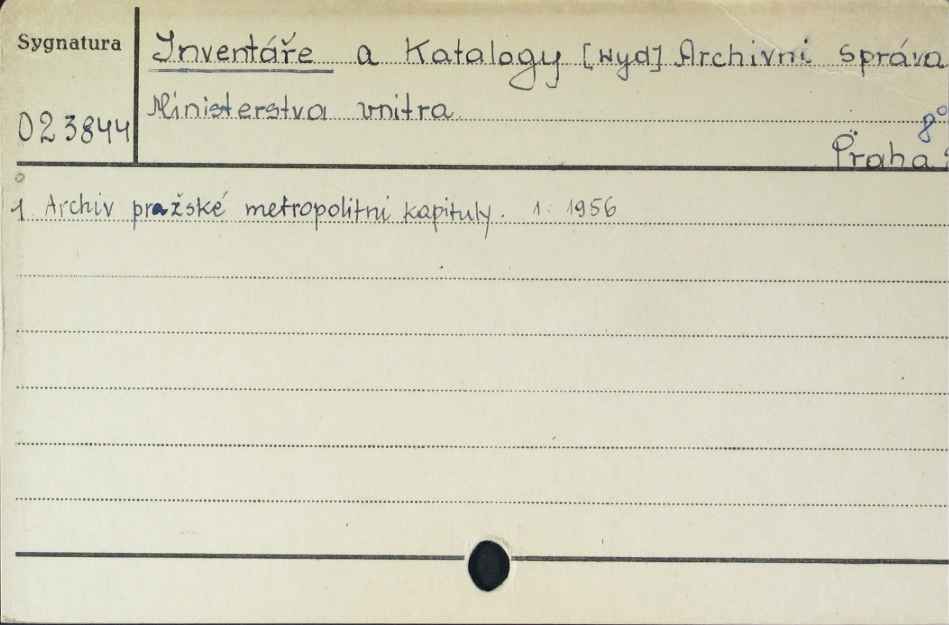 Sygnatura
Inventáře a Katalogy [wyd] Archivni Správa
Ministerstva vnitra
023844
8°
Praha
1 Archiv pražské metropolitni kapituly. 1. 1956